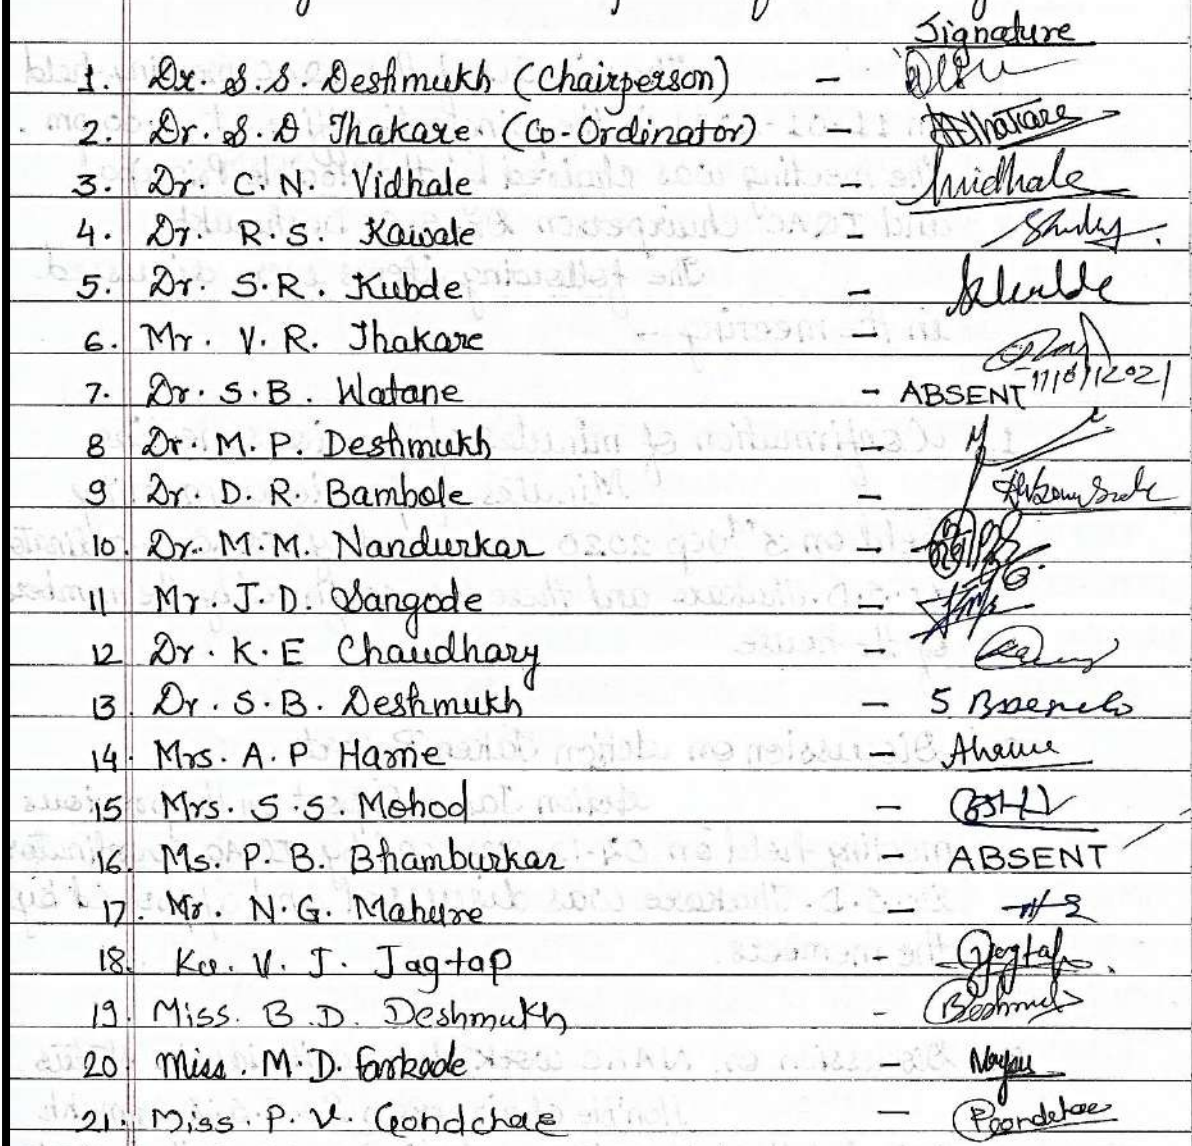 Signature
1. Dr. S.S. Deshmukh (Chairperson) -
2. Dr. S.D Thakare (Co-Ordinator) - Thakare
3. Dr. C.N. Vidhale - Vidhale
4. Dr. R.S. Kawale -
5. Dr. S.R. Kubde -
6. Mr. V.R. Thakare -
7. Dr. S.B. Watane - ABSENT
8 Dr. M.P. Deshmukh -
9 Dr. D.R. Bambole -
10. Dr. M.M. Nandurkar -
11 Mr. J.D. Sangode -
12 Dr. K.E Chaudhary -
13 Dr. S.B. Deshmukh -
14. Mrs. A.P Harne -
15 Mrs. S.S. Mohod -
16. Ms. P.B. Bhamburkar - ABSENT
17. Mr. N.G. Mahure -
18. Ku. V.J. Jagtap - Jagtap
19. Miss. B.D. Deshmukh -
20. Miss. M.D. Farkade -
21. Miss. P.V. Gondchae -